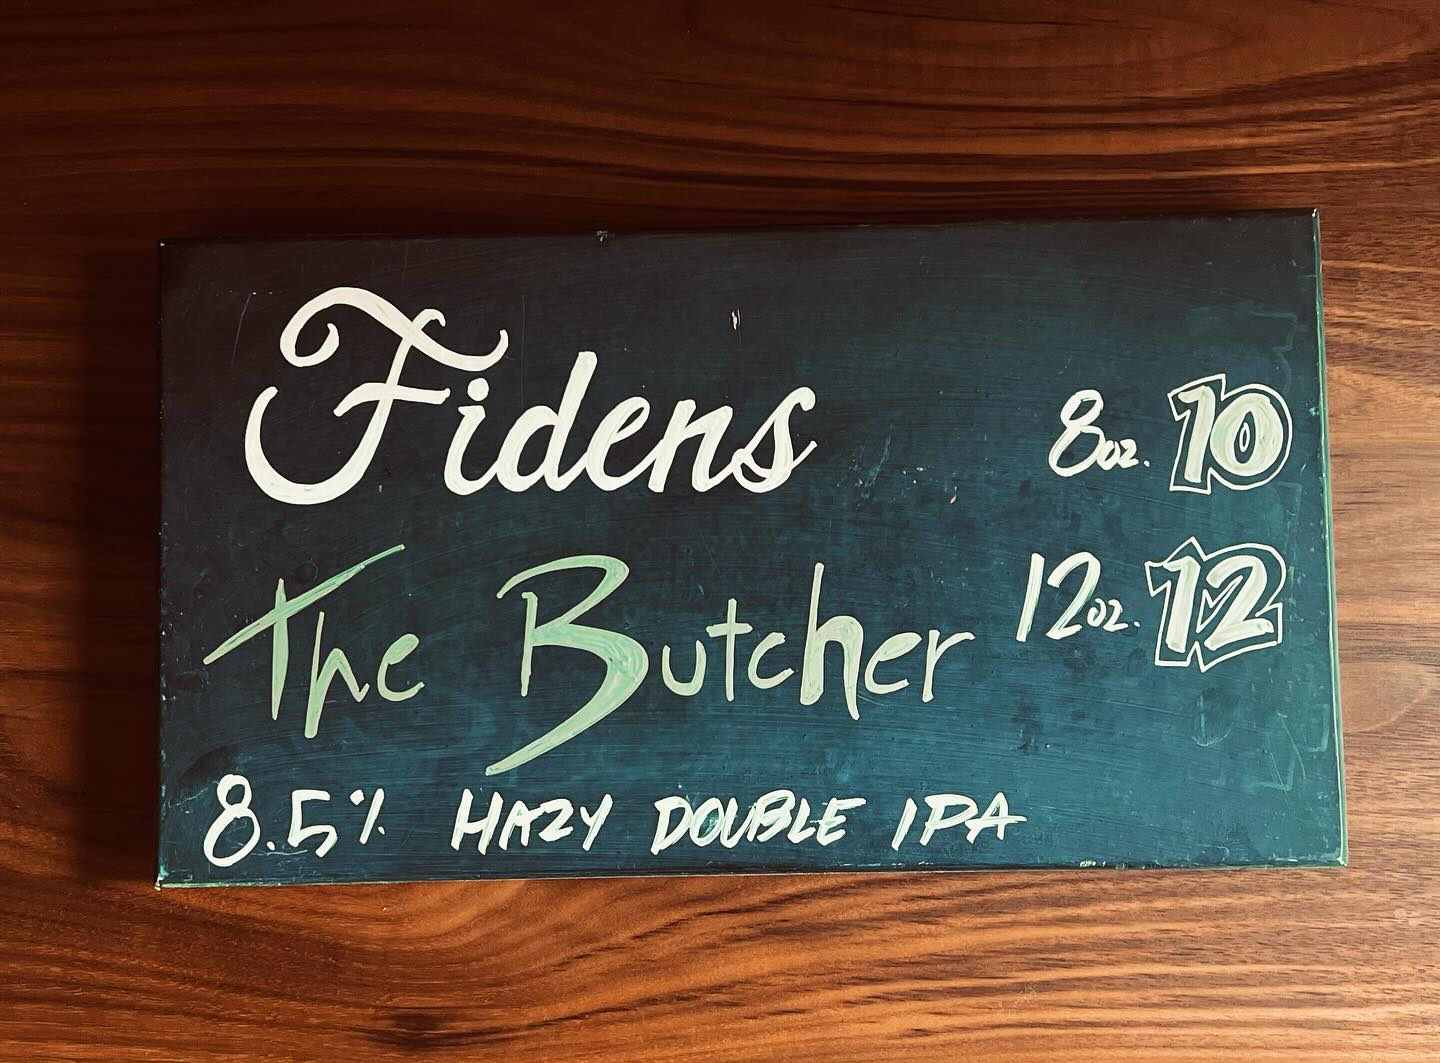 Fidens
8oz. 10
The Butcher
12oz. 12
8.5% HAZY DOUBLE IPA